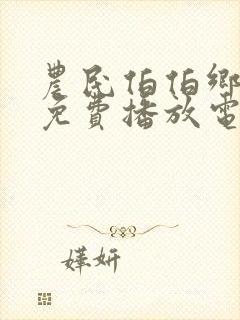 農民伯伯鄉
免費播放電
嬅妍